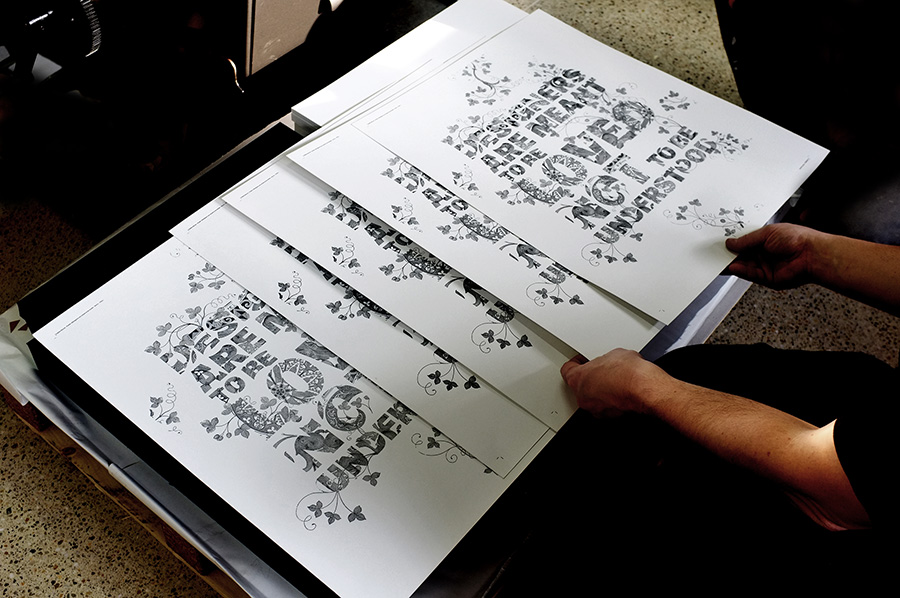 DESIGNERS
ARE MEANT
TO BE LOVED
NOT TO BE
UNDERSTOOD
DESIGN
ARE M
TO BE
LOV
NO
UNDER